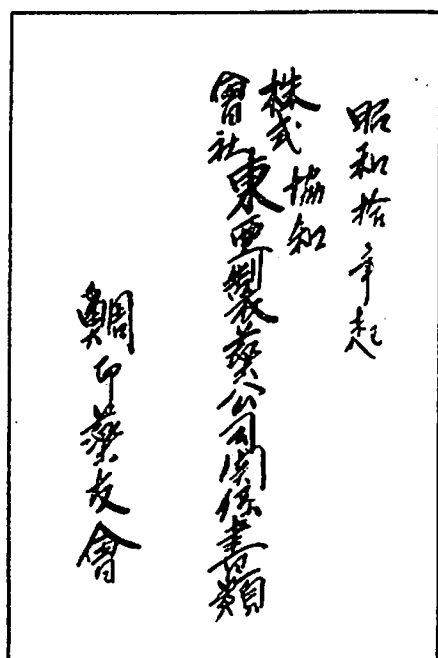 昭和拾年起
株式會社 協和
東亜製薬公司関係書類
鯛印薬友會